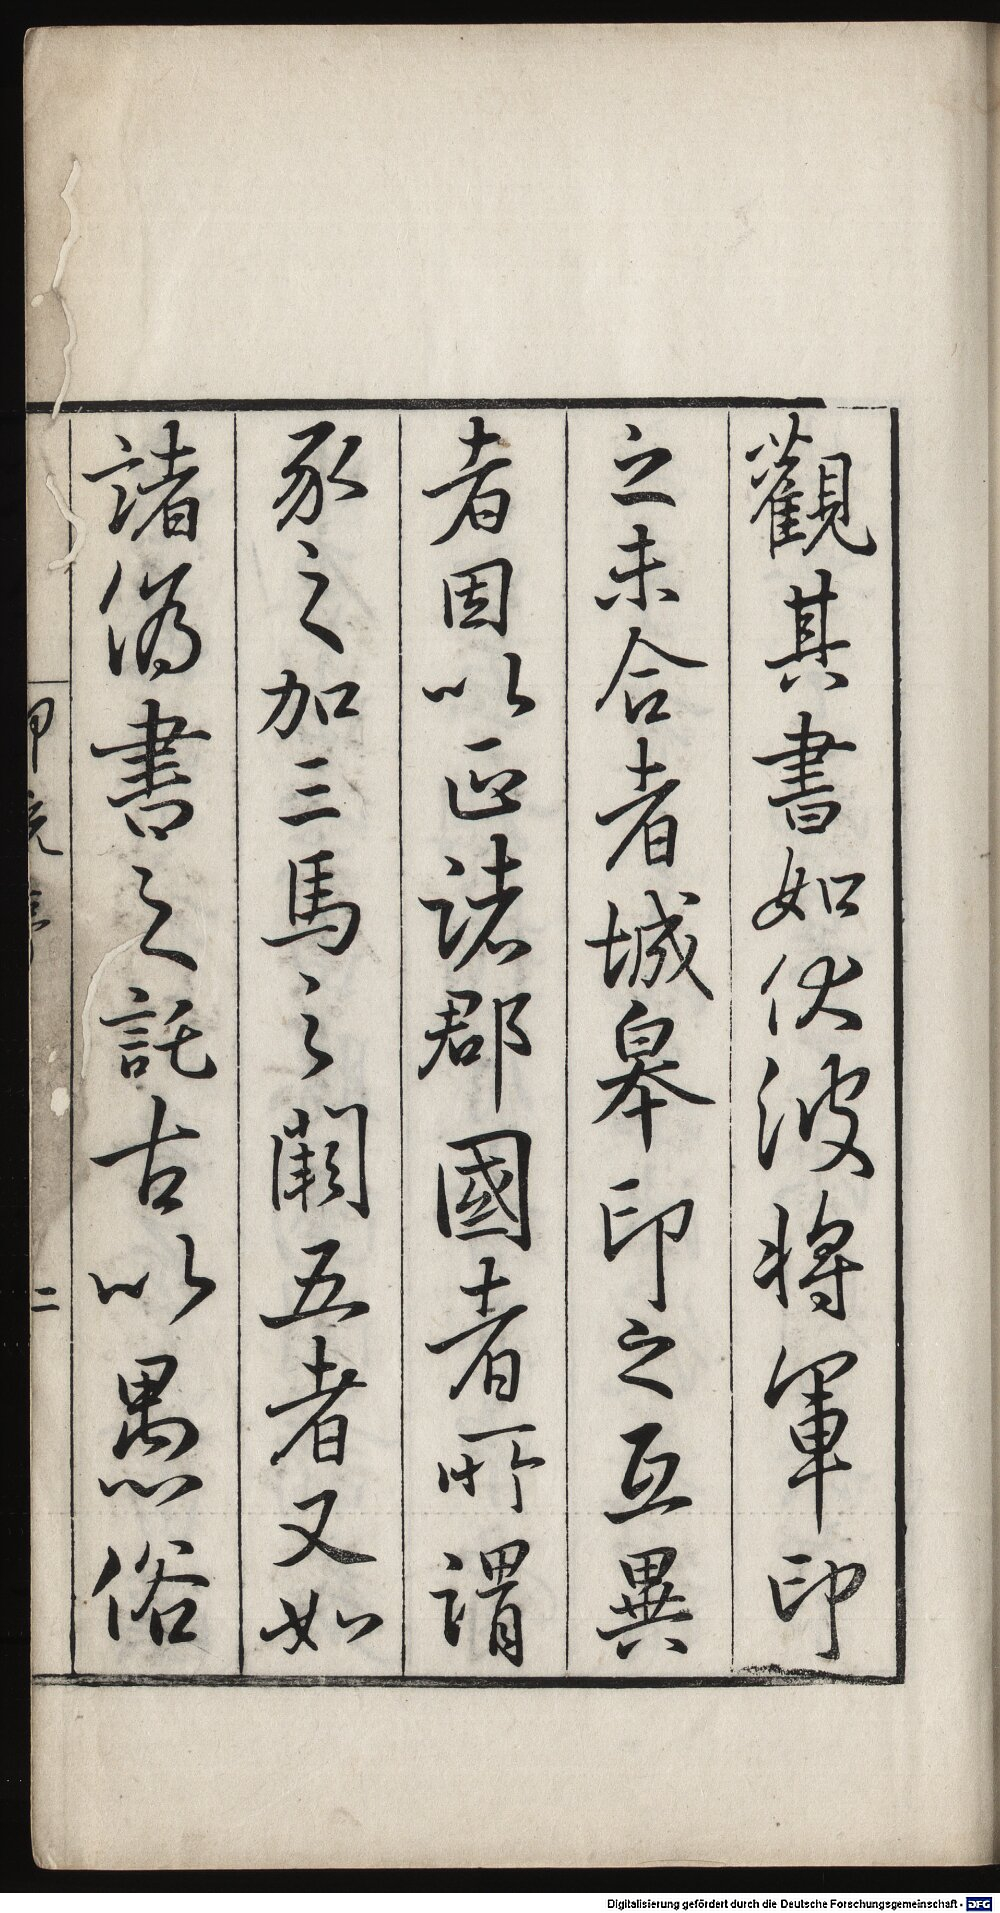 觀其書如伏波將軍印
之未合者城皋印之互異
者因以正諸郡國者所謂
豕之加三馬之闕五者又如
諸偽書之託古以愚俗
印
二
Digitalisierung gefördert durch die Deutsche Forschungsgemeinschaft - DFG